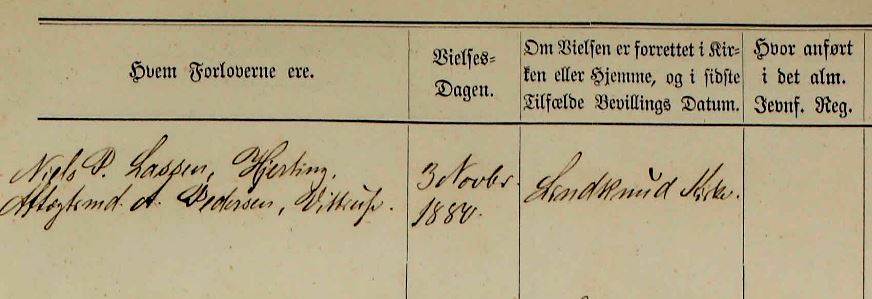 Hvem Forloverne ere.
Vielses-
Dagen.
Om Vielsen er forrettet i Kir-
ken eller Hjemme, og i sidste
Tilfælde Bevillings Datum.
Hvor anført
i det alm.
Jevnf. Reg.
Niels P. Lassen, Hjerting.
Aftægtsmd. A. Pedersen, Vittrup.
3 Novbr.
1880.
Lindknud Kirke.